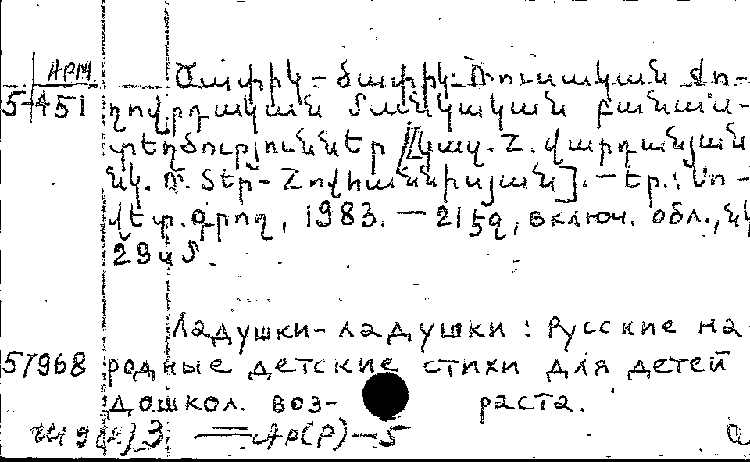 АРМ
5-451
Ծափիկ-ծափիկ: Ռուսական ժո-
ղովրդական մանկական բանաս-
տեղծություններ [Կազմ. Հ. Վարդանյան
նկ. Ռ. Տեր-Հովհաննիսյան]. — Եր.: Սո-
վետ. գրող, 1983. — 21 էջ, включ. обл., նկ
29 սմ.
Ладушки-ладушки: Русские на-
57968 родные детские стихи для детей
дошкол. воз- раста.
= Ар(Р)-5